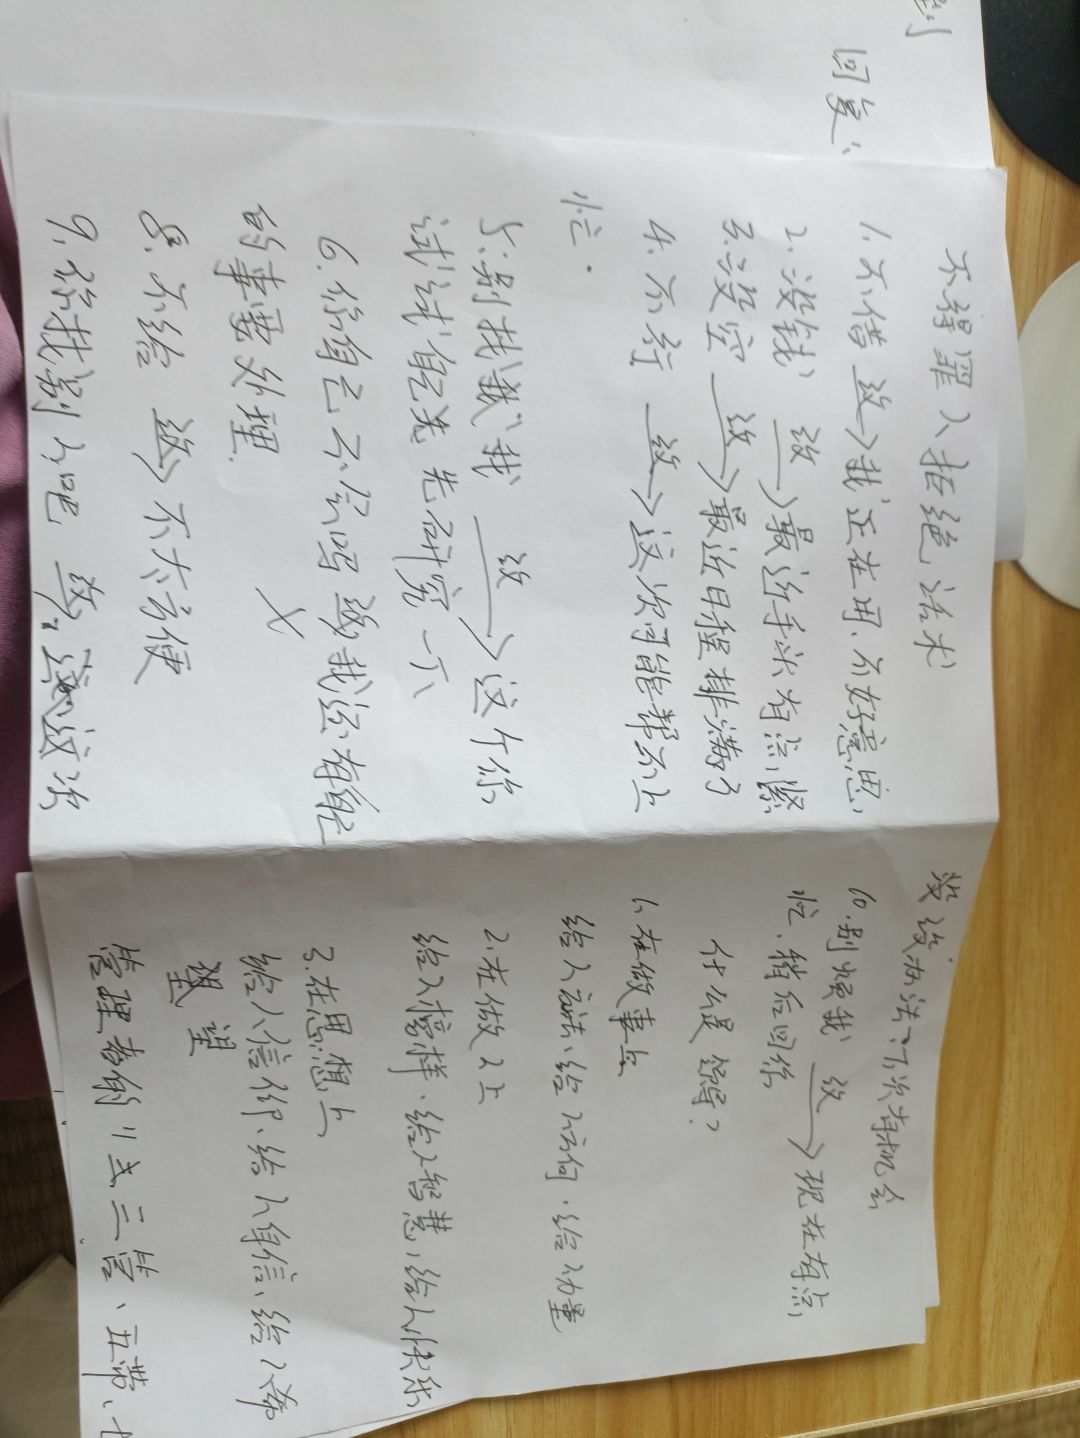 到
回复:
不得罪人拒绝话术
1.不借 改→我正在用、不好意思
2.没钱 改→最近手头有点紧
3.没空 改→最近日程排满了
4.不行 改→这次可能帮不上
忙.
5.别找我,我 改→这个你
试试自己先 先研究一下
6.你自己不会吗 改 我还有自己
的事要处理.
8.不给 改→不太方便
9.你找别人吧 改 这次
没办法,下次有机会
10.别烦我 改→现在有点
忙、稍后回你
什么是领导?
1、在做事上
给人方法、给人方向、给人力量
2.在做人上
给人榜样、给人智慧,给人快乐
3.在思想上
给人信仰、给人自信、给人希
望
管理者的 三管、五带、七